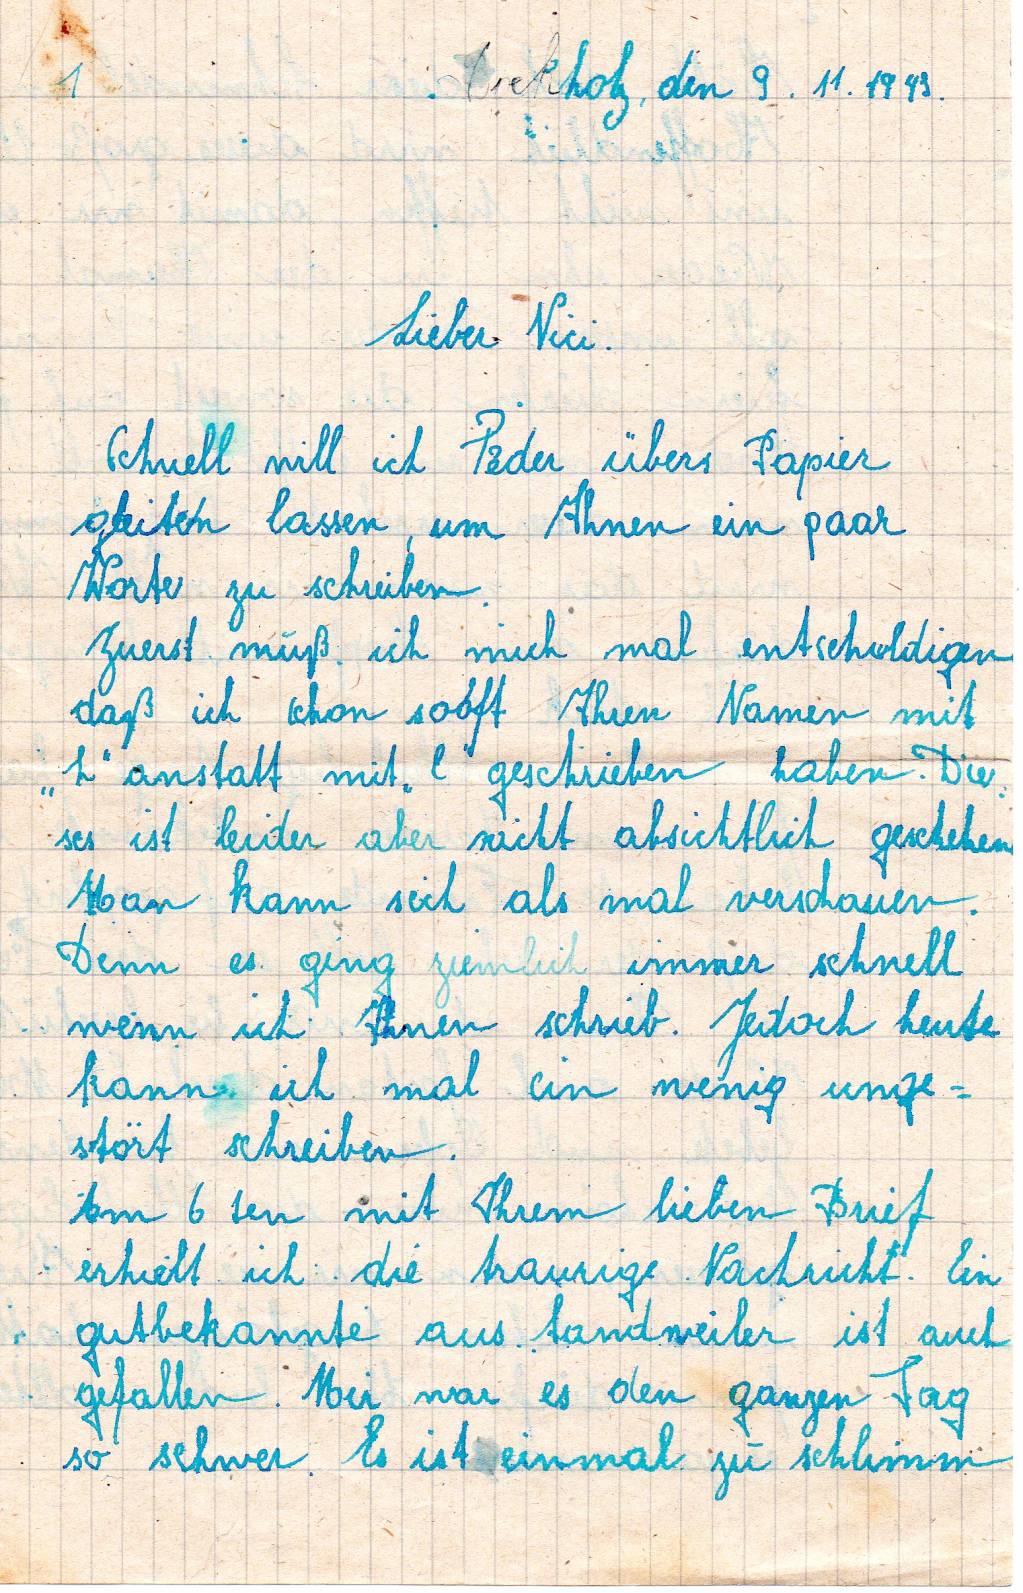 1
holz, den 9. 11. 1943.
Lieber Nici.
Schnell will ich Feder übers Papier
gleiten lassen, um Ihnen ein paar
Worte zu schreiben.
Zuerst muß ich mich mal entschuldigen
daß ich schon sooft Ihren Namen mit
„h" anstatt mit „c" geschrieben haben. Die-
ses ist leider aber nicht absichtlich geschehen
Man kann sich als mal verschauen.
Denn es ging ziemlich immer schnell
wenn ich Ihnen schrieb. Jedoch heute
kann ich mal ein wenig unge=
stört schreiben.
Am 6 ten mit Ihrem lieben Brief
erhielt ich die traurige Nachricht. Ein
gutbekannte aus Landweiler ist auch
gefallen. Mir war es den ganzen Tag
so schwer. Es ist einmal zu schlimm